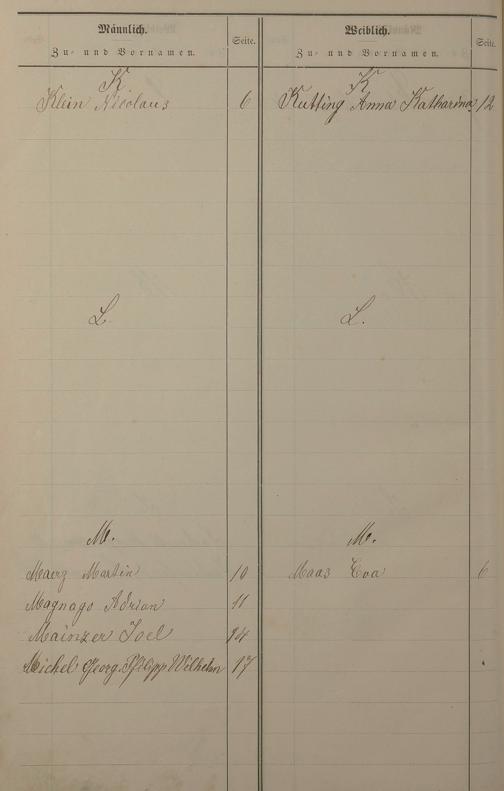 Männlich.
Zu- und Vornamen.
Seite.
K
Klein Nicolaus 6
L.
M.
Maerz Martin 10
Magnago Adrian 11
Mainzer Joel 14
Michel Georg Philipp Wilhelm 17
Weiblich.
Zu- und Vornamen.
Seite.
K
Kutting Anna Katharina 12
L.
M.
Maas Eva 6